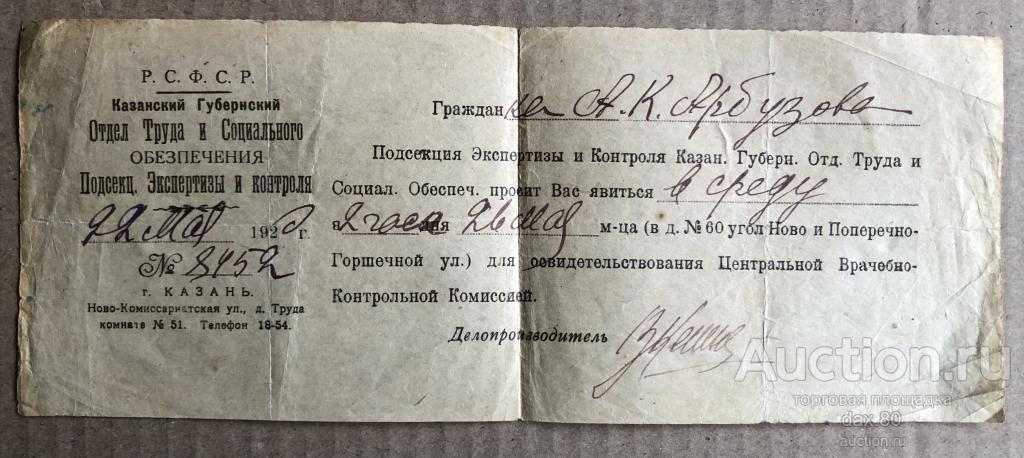 Р. С. Ф. С. Р.
Казанский Губернский
Отдел Труда и Социального
ОБЕЗПЕЧЕНИЯ
Подсекц. Экспертизы и контроля
22 Мая 1920 г.
№ 8452
г. КАЗАНЬ.
Ново-Комиссариатская ул., д. Труда
комната № 51. Телефон 18-54.
Гражданка А. К. Арбузова
Подсекция Экспертизы и Контроля Казан. Губерн. Отд. Труда и
Социал. Обеспеч. просит Вас явиться в среду
в 2 часа дня 26 мая м-ца (в д. № 60 угол Ново и Поперечно-
Горшечной ул.) для освидетельствования Центральной Врачебно-
Контрольной Комиссией.
Делопроизводитель
Auction.ru
торговая площадка
dax 80
auction.ru